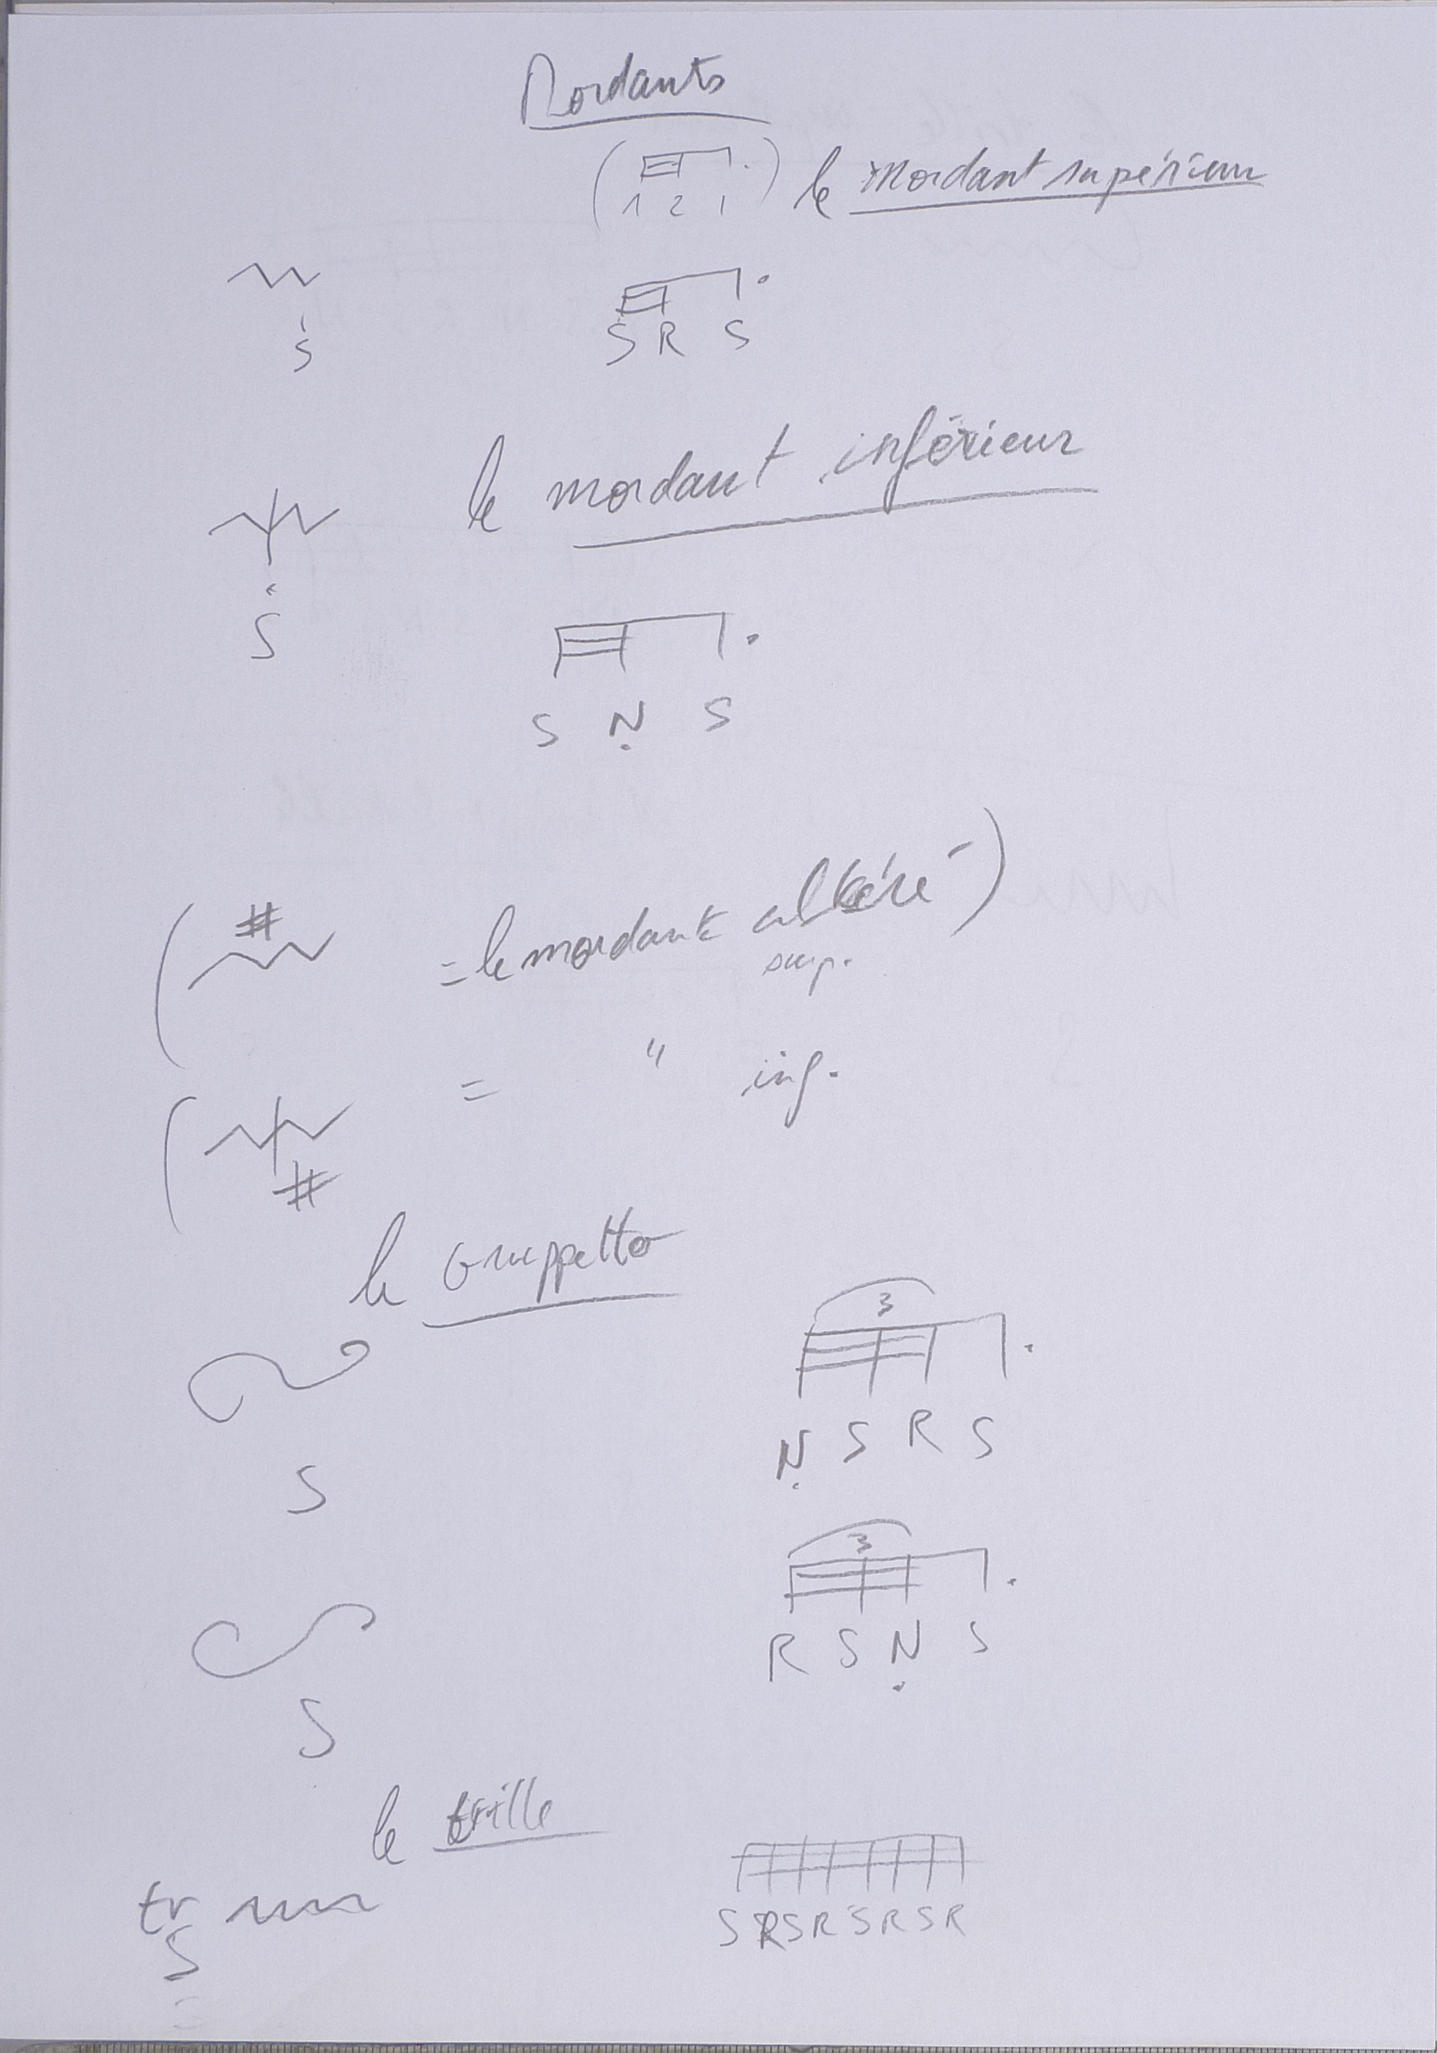 Mordants
( 1 2 1 ) le Mordant supérieur
S
S R S
le mordant inférieur
S
S N S
( # = le mordant altéré )
sup.
( = " inf.
#
le Gruppetto
3
N S R S
S
3
R S N S
S
le trille
tr
S
S R S R S R S R